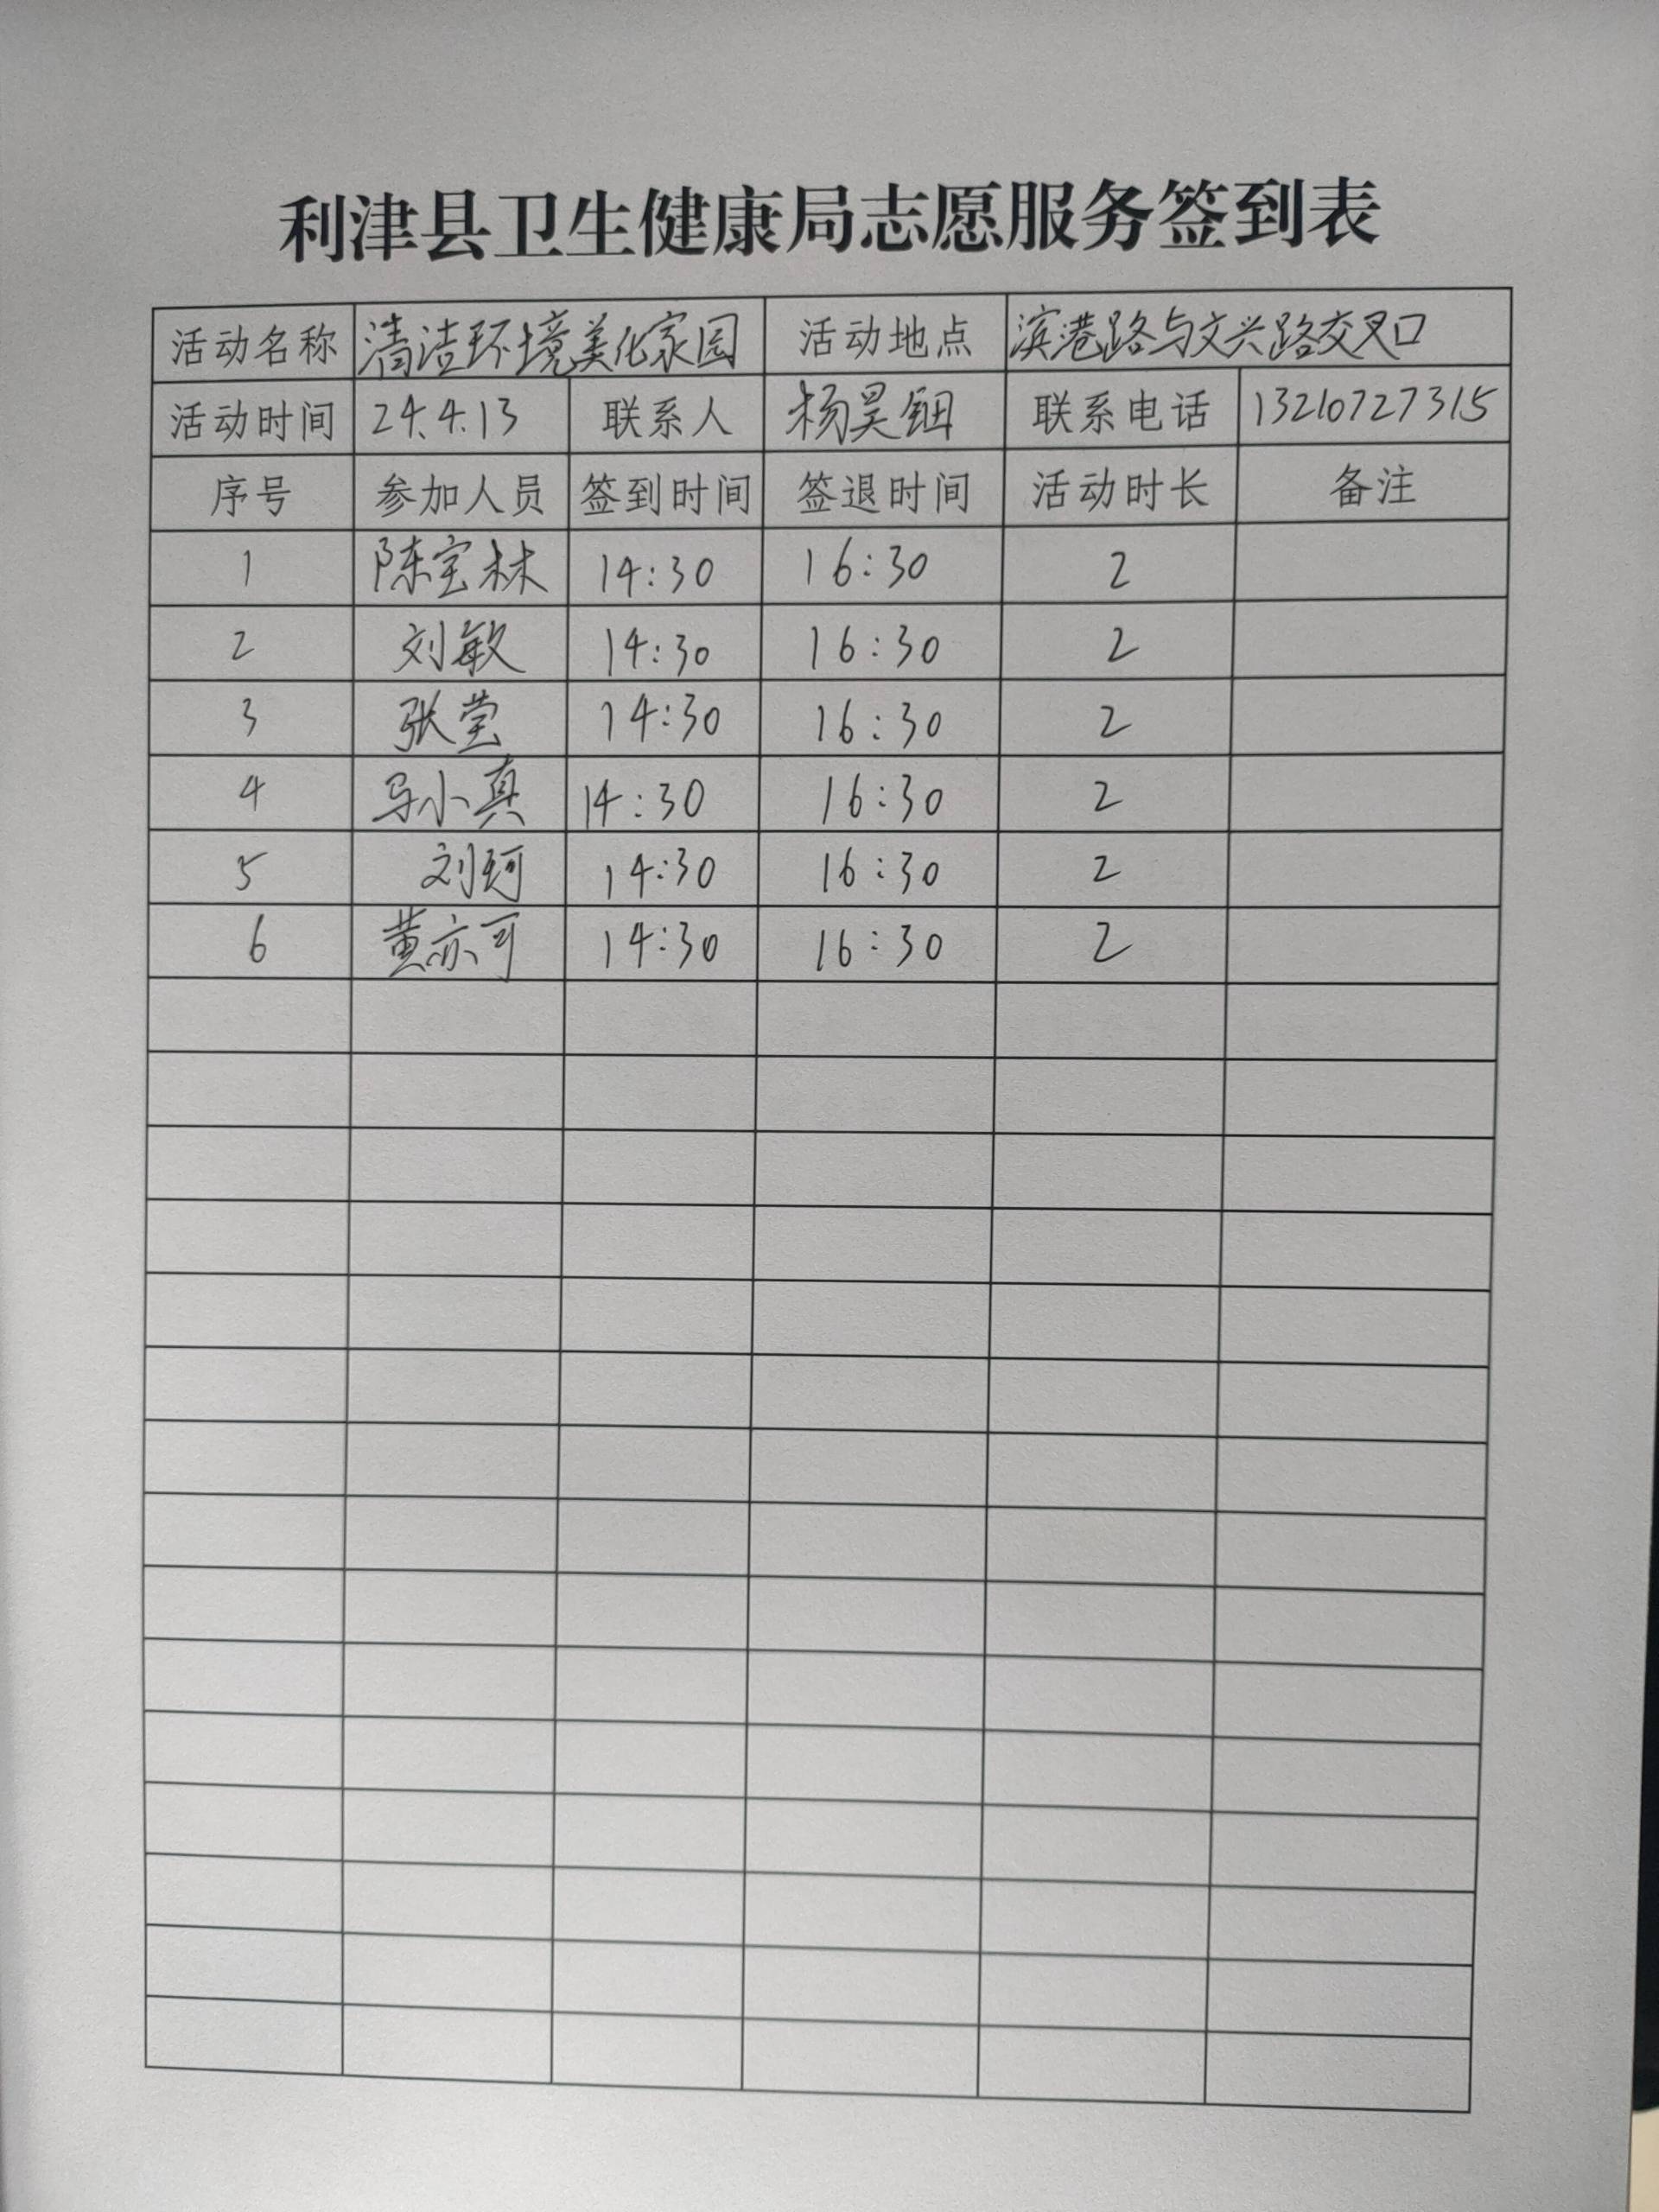 利津县卫生健康局志愿服务签到表
活动名称 清洁环境美化家园 活动地点 滨港路与文兴路交叉口
活动时间 24.4.13 联系人 杨昊钿 联系电话 13210727315
序号 参加人员 签到时间 签退时间 活动时长 备注
1 陈宝林 14:30 16:30 2
2 刘敏 14:30 16:30 2
3 张莹 14:30 16:30 2
4 马小真 14:30 16:30 2
5 刘珂 14:30 16:30 2
6 黄亦可 14:30 16:30 2